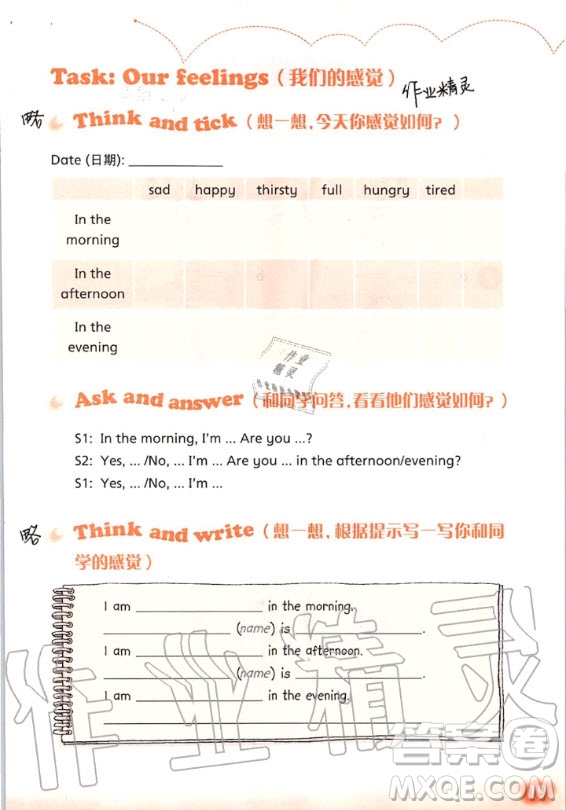 Task: Our feelings（我们的感觉）
作业精灵
略 Think and tick（想一想，今天你感觉如何？）
Date (日期): ____________
sad happy thirsty full hungry tired
In the
morning
In the
afternoon
In the
evening
作业
精灵
Ask and answer（和同学问答，看看他们感觉如何？）
S1: In the morning, I'm ... Are you ...?
S2: Yes, ... /No, ... I'm ... Are you ... in the afternoon/evening?
S1: Yes, ... /No, ... I'm ...
略 Think and write（想一想，根据提示写一写你和同
学的感觉）
I am ____________ in the morning.
____________ (name) is ____________.
I am ____________ in the afternoon.
____________ (name) is ____________.
I am ____________ in the evening.
____________.
作业精灵
答案圈
MXQE.COM